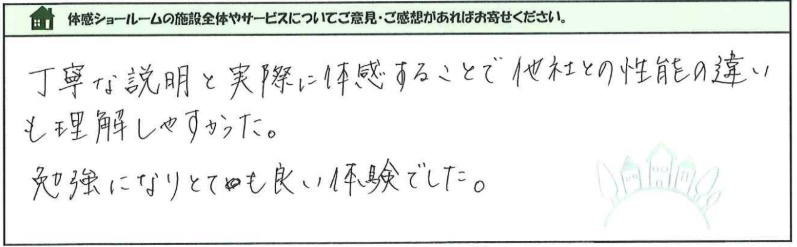 体感ショールームの施設全体やサービスについてご意見・ご感想があればお寄せください。
丁寧な説明と実際に体感することで他社との性能の違い
も理解しやすかった。
勉強になりとても良い体験でした。